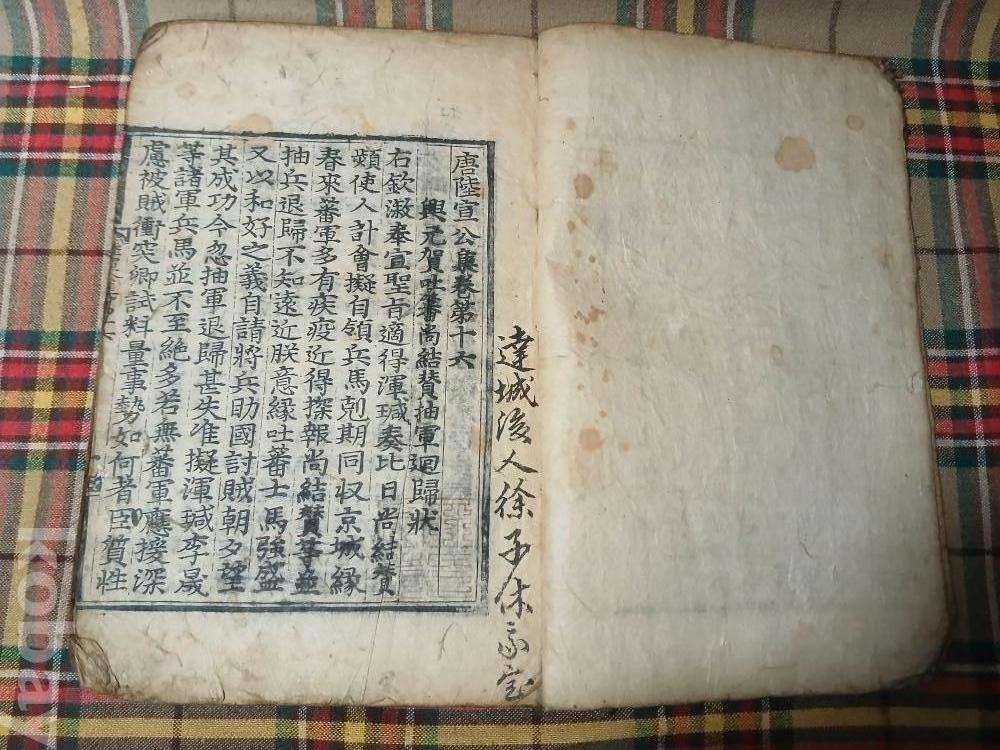 達城後人徐子休家宝
唐陸宣公集卷第十六
興元賀吐蕃尚結贊抽軍迴歸狀
右欽溆奉宣聖旨適得渾瑊奏比日尚結贊
頻使人計會擬自領兵馬剋期同収京城緣
春來蕃軍多有疾疫近得探報尚結贊等並
抽兵退歸不知遠近朕意緣吐蕃士馬強盛
又以和好之義自請將兵助國討賊朝夕望
其成功今忽抽軍退歸甚失准擬渾瑊李晟
等諸軍兵馬並不至絶多若無蕃軍應援深
慮被賊衝突卿試料量事勢如何者臣質性
kobay